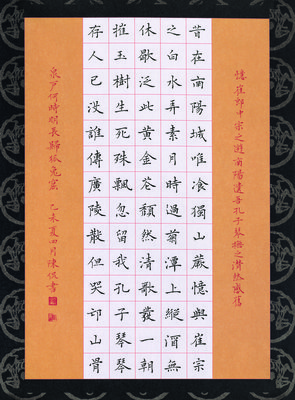 憶崔郎中宗之遊南陽遺吾孔子琴撫之潸然感舊
昔在南陽城唯飡獨山蕨憶與崔宗
之白水弄素月時過菊潭上縱酒無
休歇泛此黃金花頹然清歌發一朝
摧玉樹生死殊飄忽留我孔子琴琴
存人已沒誰傳廣陵散但哭邙山骨
泉戶何時明長歸狐兔窟 乙未夏四月陳書